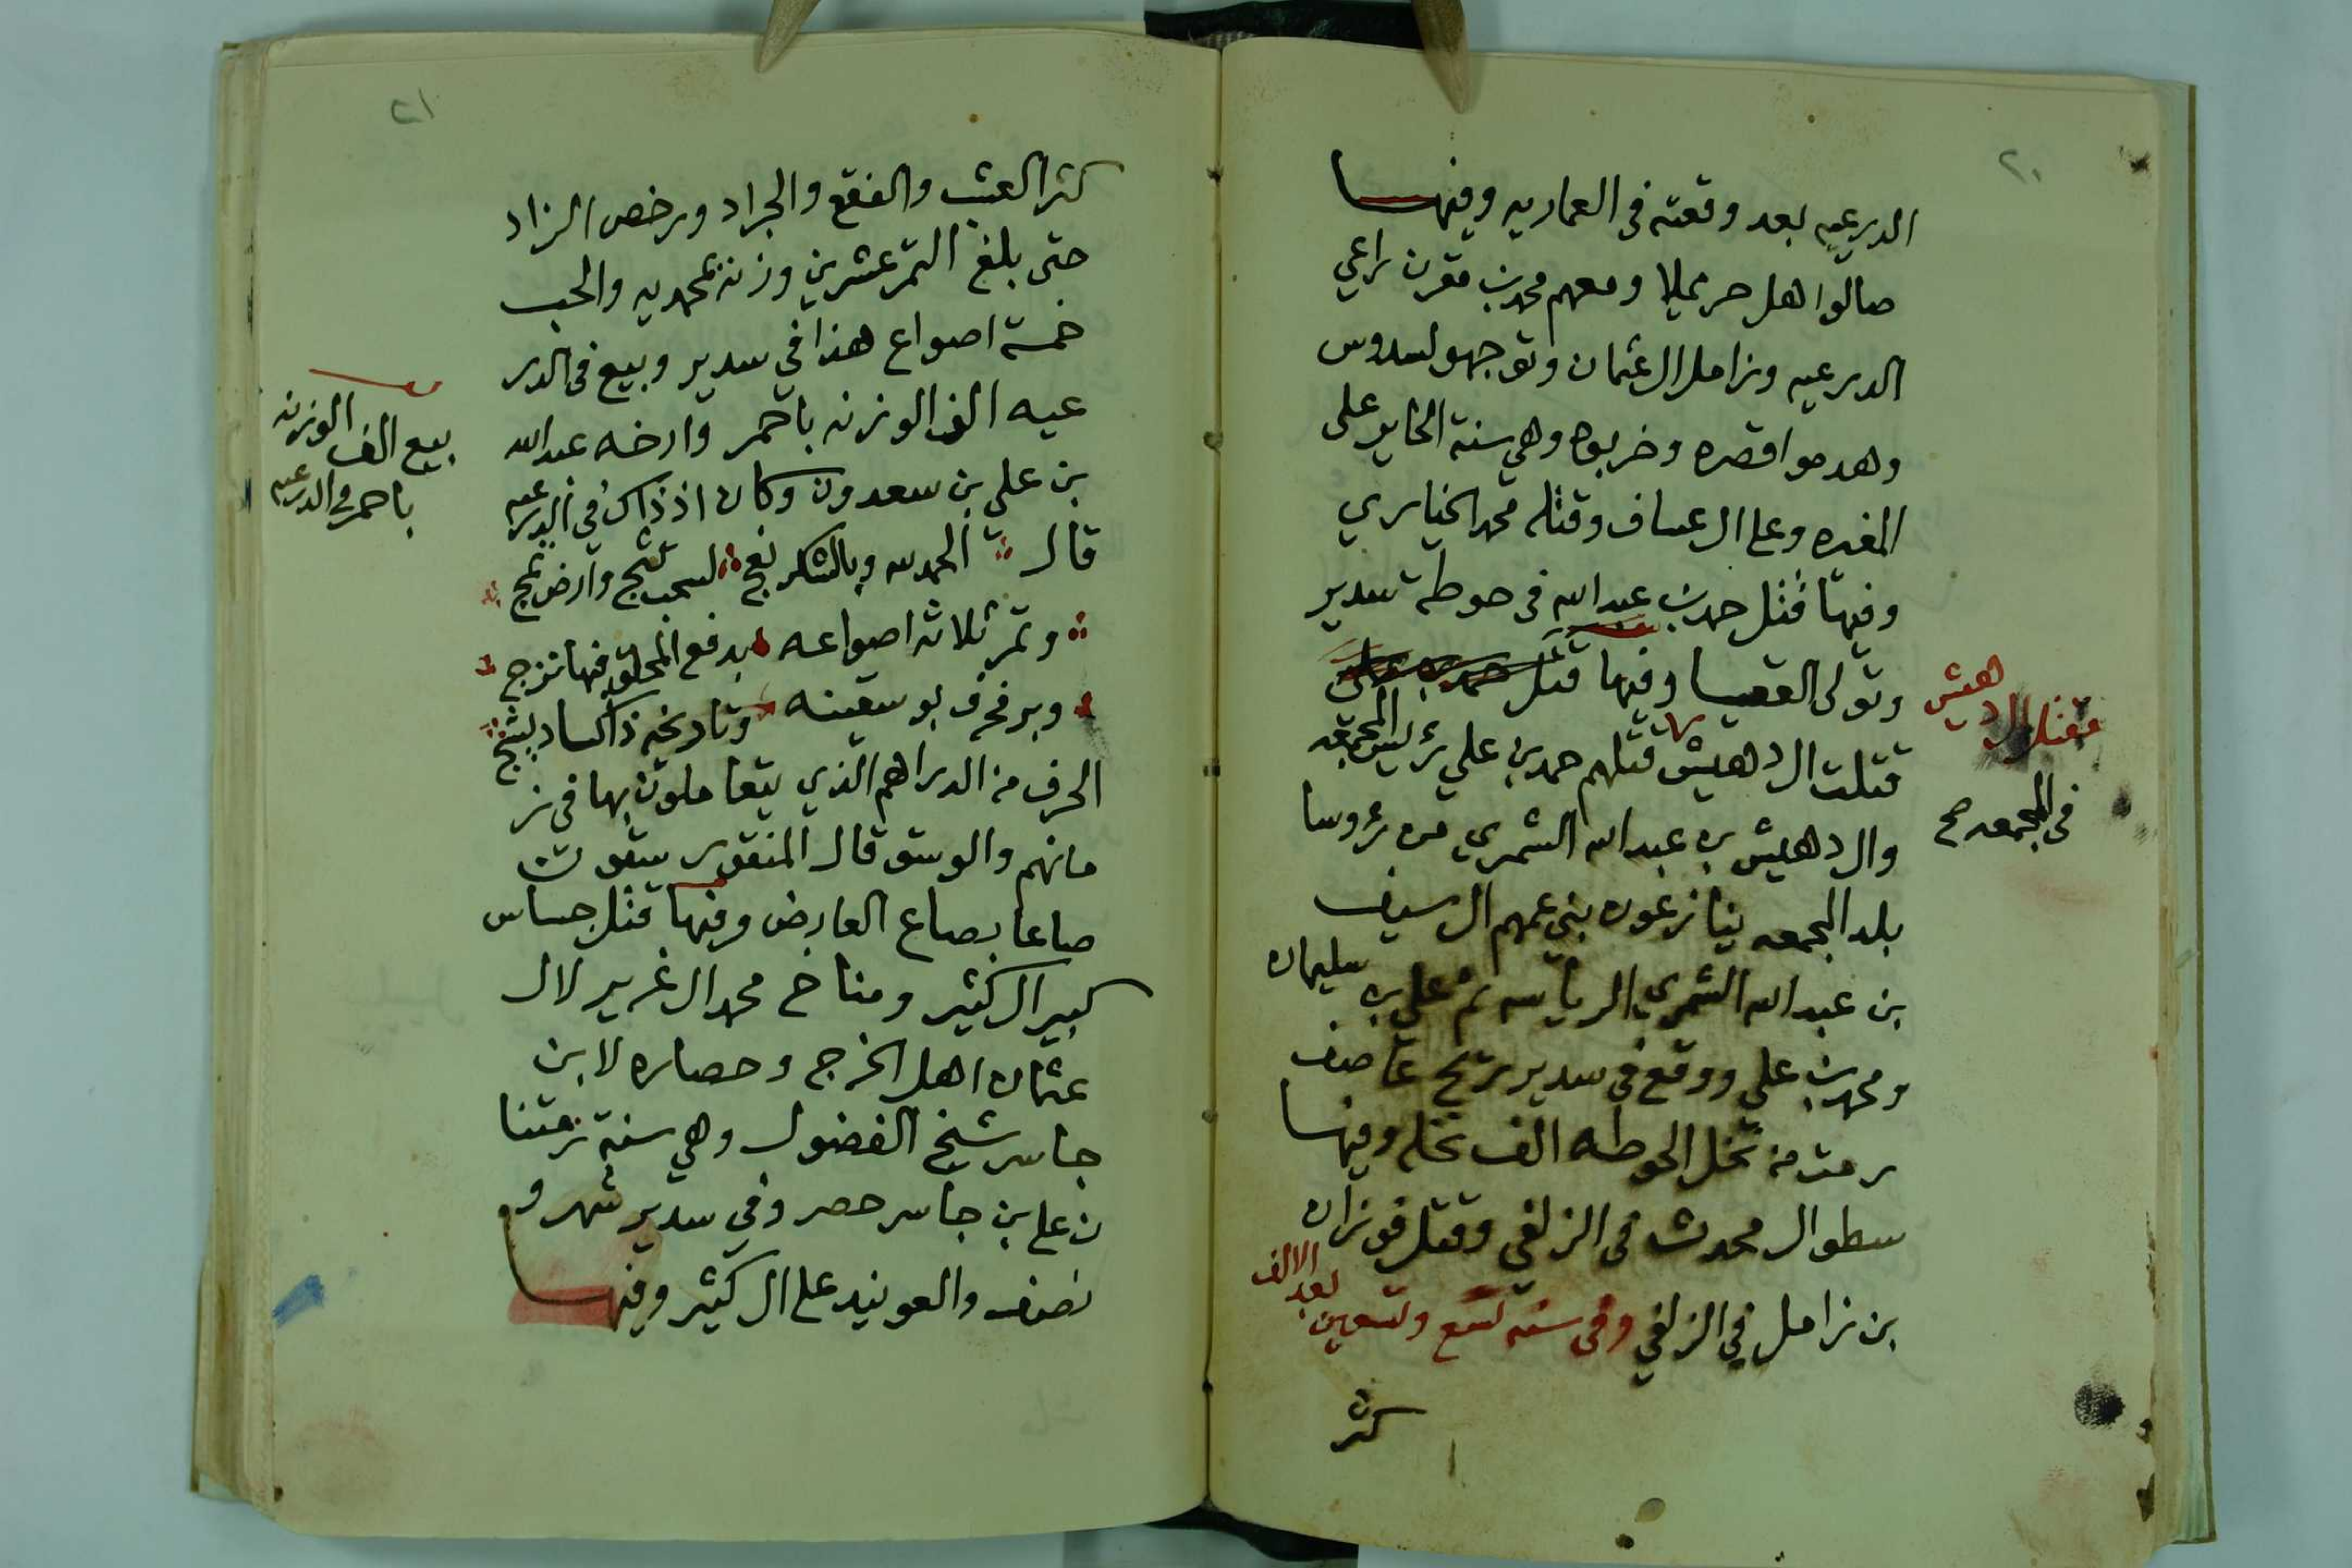 ٢٠
الدرعيه بعد وقعته في العماريه وفيها
صالوا اهل حريملا ومعهم محمد بن مقرن راعي
الدرعيه وزامل ال عثمان وتوجهو لسدوس
وهدموا قصره وخربوه وهي سنة الحاير على
المغيره وعلى ال عساف وقتله محمد الخياري
وفيها قتل حمد بن عبدالله في حوطة سدير
وتولى القعيسا وفيها قتل حمد بن علي
قتلت ال دهيش قتلهم حمد بن علي رئيس المجمعه
وال دهيش بن عبدالله الشمري من رؤوسا
بلد المجمعه ينازعون بني عمهم ال سيف
بن عبدالله الشمري الرياسه ثم علي بن سليمان
ومحمد بن علي ووقع في سدير ريح عاصف
رمت من نخل الحوطه الف نخله وفيها
سطو ال محدث في الزلفي وقتل فوزان
بن زامل في الزلفي وفي سنه تسع وتسعين بعد الالف
كثر
مقتل ال دهيش
في المجمعه صح
٢١
كثر العشب والفقع والجراد ورخص الزاد
حتى بلغ التمر عشرين وزنه بمحمديه والحب
خمسة اصواع هذا في سدير وبيع في الدر
عيه الف الوزنه باحمر وارخه عبدالله
بن علي بن سعدون وكان اذ ذاك في الدرعيه
قال الحمد لله وبالشكر نعج لسحب تثج وارض تمج
وتمر ثلاثه اصواعه بدفع المحلق فيها نزج
وبر فحرف بو سقينه وتاريخه ذاكساد يثج
الحرف من الدراهم الذي يتعاملون بها في ز
مانهم والوسق قال المنقور ستون
صاعا بصاع العارض وفيها قتل جساس
كبير ال كثير ومناخ محمد ال غرير لال
عثمان اهل الخرج وحصاره لابن
جاسر شيخ الفضول وهي سنة زمتنا
ن علي بن جاسر حصر وفي سدير شهر و
نصف والعونيد على ال كثير وفيها
بيع الف الوزنه
باحمر في الدرعيه